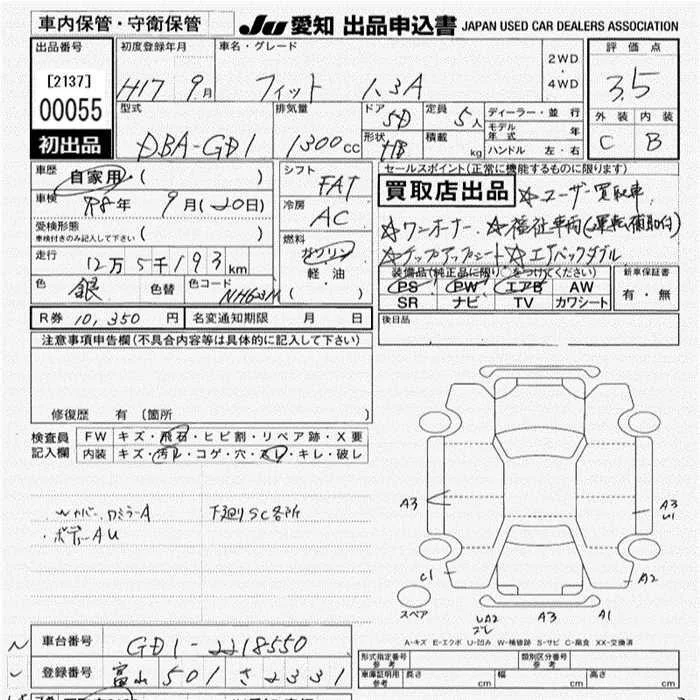 車内保管・守衛保管
JU 愛知 出品申込書 JAPAN USED CAR DEALERS ASSOCIATION
出品番号 初度登録年月 車名・グレード 2WD・4WD 評価点
[2137] H17 9月 フィット 1.3A 3.5
00055 型式 排気量 ドア 5D 定員 5人 ディーラー・並行 外装 内装
初出品 DBA-GD1 1300cc 形状 HB 積載 kg モデル年式 年 C B
ハンドル 左・右
車歴 自家用 ( ) シフト FAT セールスポイント(正常に機能するものに限ります)
車検 R8年 9月(20日) 冷房 AC 買取店出品 ☆ユーザー買取車
受検形態 ☆ワンオーナー ☆福祉車両(運転補助付)
車検付きのみ記入して下さい ( ) 燃料 ガソリン
走行 12万5千193km 軽油 ☆チップアップシート☆エアバックダブル
色 銀 色替 色コード NH623M ( ) 装備品(純正品に限り○をつけてください) 新車保証書
PS PW エアB AW 有・無
SR ナビ TV カワシート
R券 10,350円 名変通知期限 月 日 後日品
注意事項申告欄(不具合内容等は具体的に記入して下さい)
修復歴 有 〔箇所 〕
検査員 FW キズ・飛石・ヒビ割・リペア跡・X要
記入欄 内装 キズ・汚レ・コゲ・穴・スレ・キレ・破レ
ロミラーA 下廻りSC各所
・ボデーAU
A3 A3
U1
C1 A2
スペア UA2 A3 A1
A-キズ E-エクボ U-凹み W-補修跡 S-サビ C-腐食 XX-交換済
車台番号 GD1-2218550 形式指定番号 参考 類別区分番号 参考
登録番号 富山 501 さ 2331 車庫証明用 参考 長さ cm 幅 cm 高さ cm